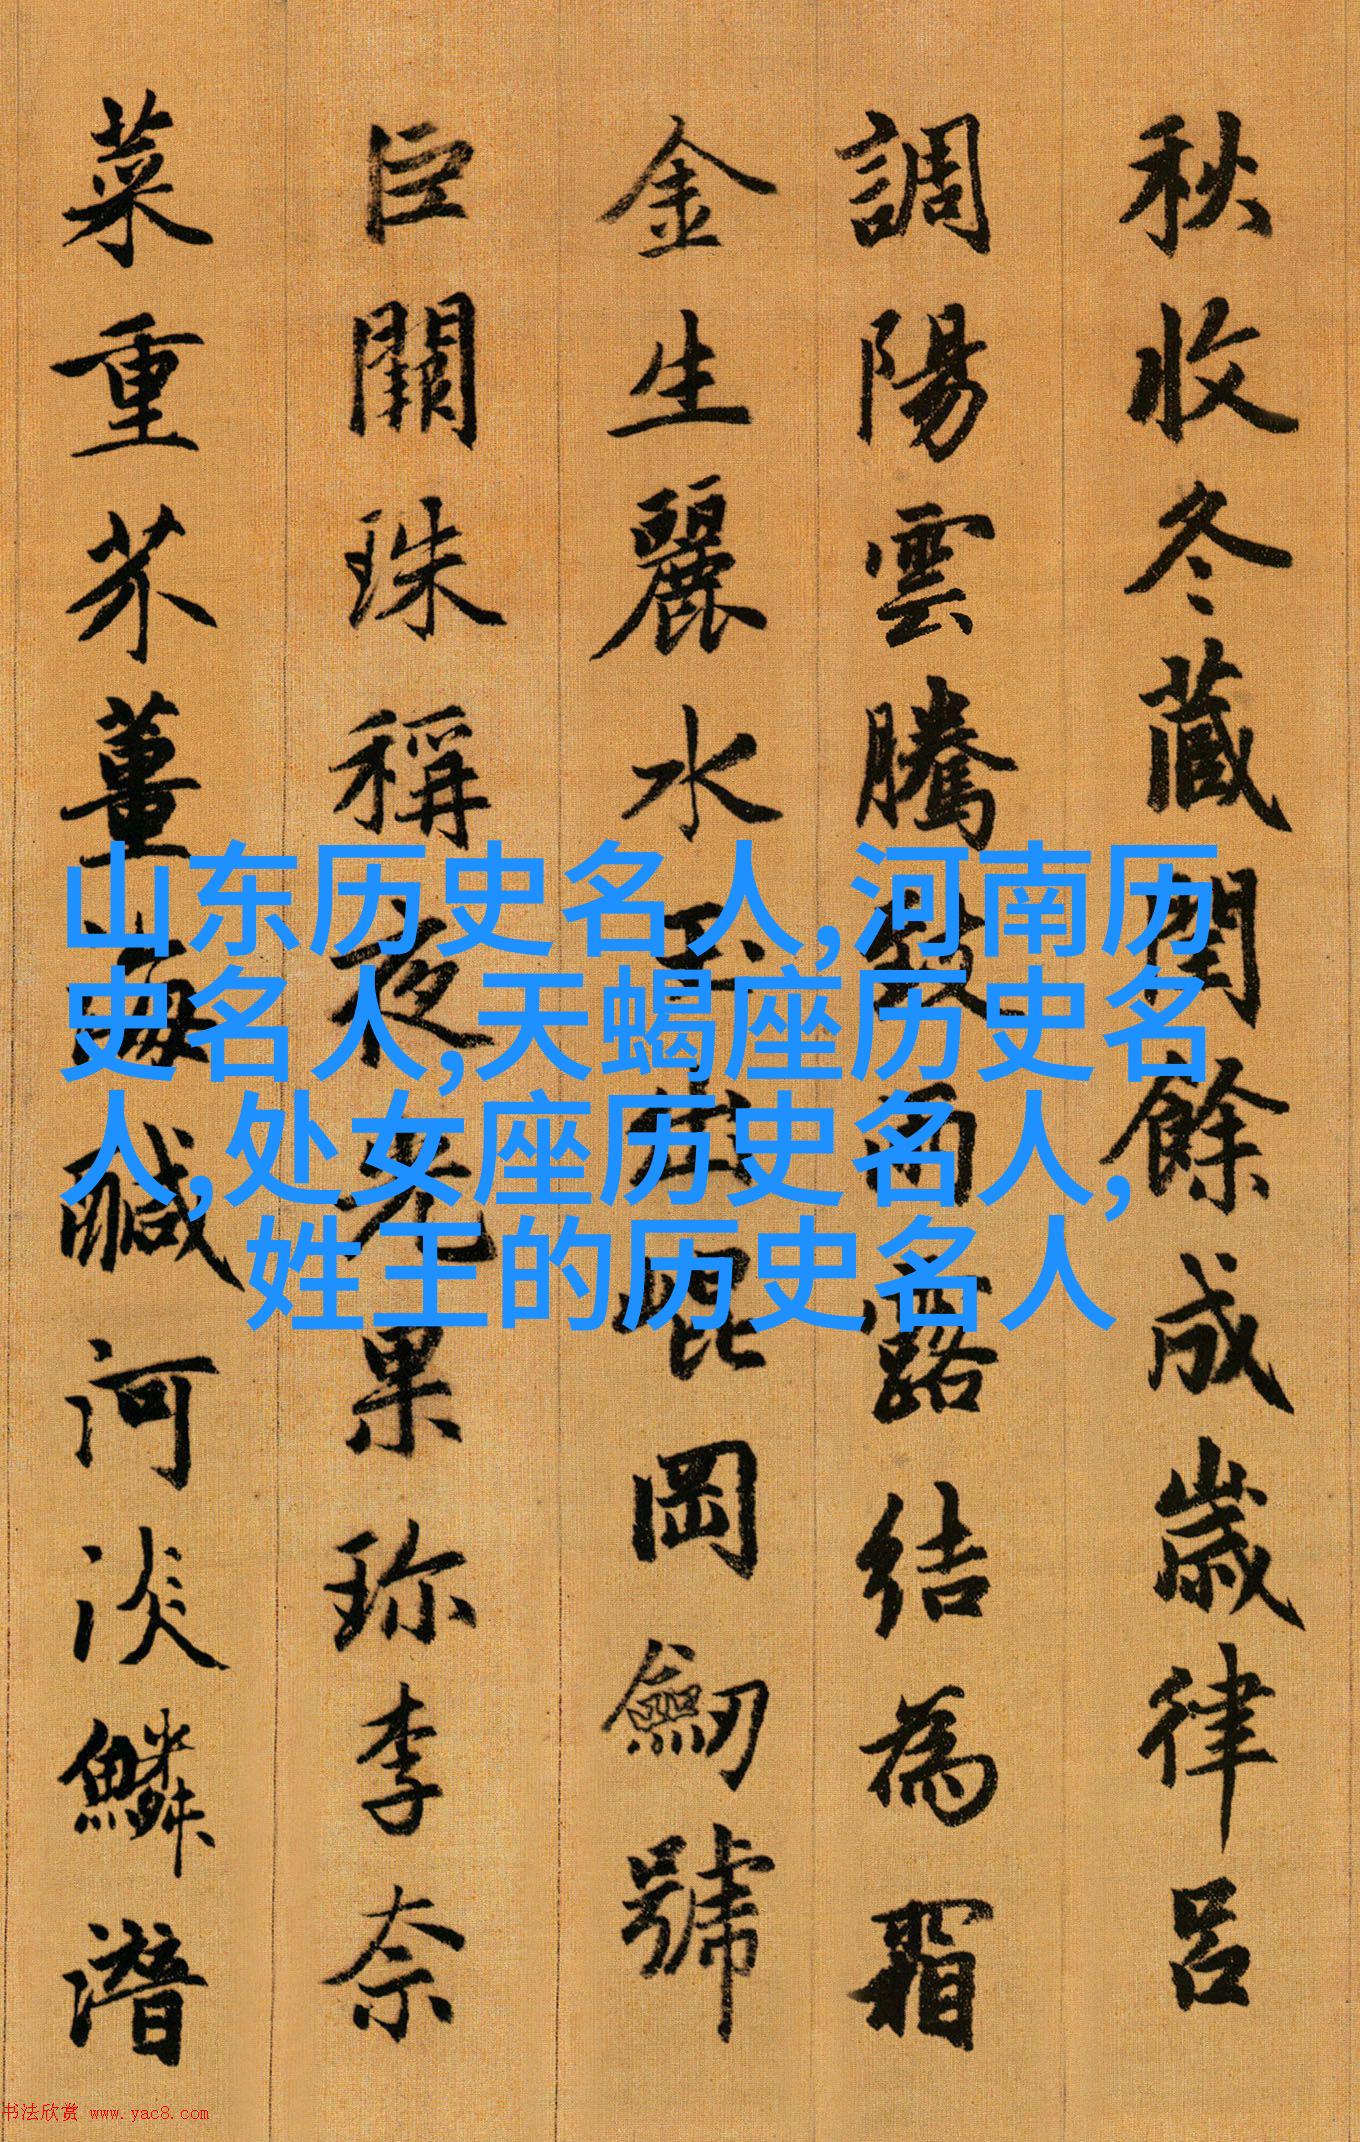 秋收冬藏閏餘成歲律呂
調陽雲騰致雨露結為霜
金生麗水玉出崑岡劒號
巨闕珠稱夜光果珎李柰
菜重芥薑海鹹河淡鱗潛
山东历史名人,河南历
史名人,天蝎座历史名
人,处女座历史名人,
姓王的历史名人
书法欣赏 www.yac8.com